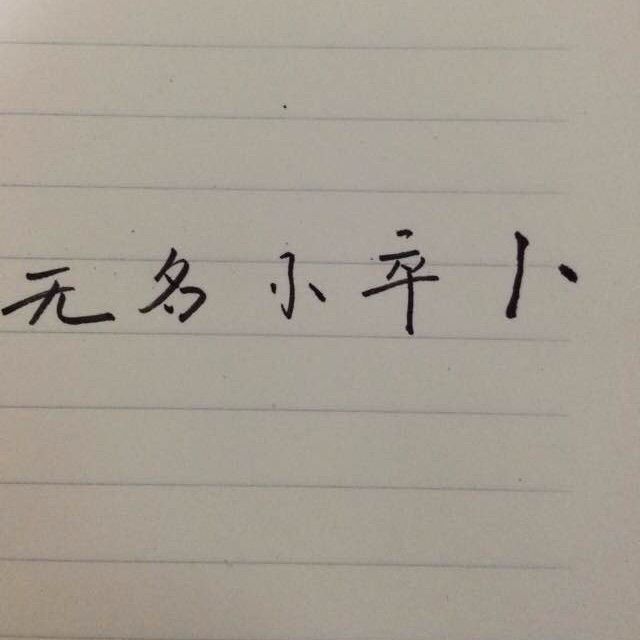 无名小卒卜